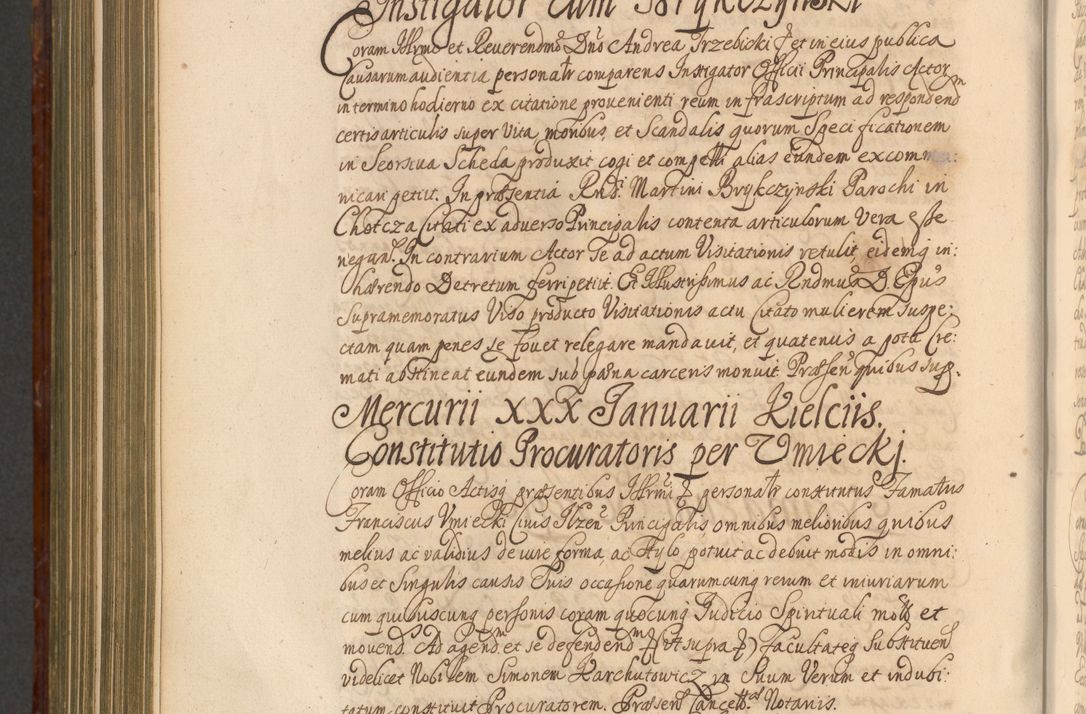 Instigator cum Brykczynski
Coram Illrmo et Reverendmo Dno Andrea Trzebicki & et in eius publica
Causarum audientia personalr comparens Instigator Officii Principalis Actor
in termino hodierno ex citatione provenienti reum infrascriptum ad respondend
certis articulis super vita moribus, et Scandalis quorum Specificationem
in Seorsiva Scheda produxit cogi et compelli alias eundem excom
nicari petiit. In præsentia Rndi Martini Brykczynski Parochi in
Chotcza Citati ex adverso Principalis contenta articulorum vera esse
negan. In contrarium Actor se ad actum Visitationis retulit eidemq in:
hærendo Decretum ferri petiit. Et Illustrissimus ac Rndmus D. Epus
Supramemoratus Viso producto Visitationis actu Citato mulierem suspe:
ctam quam penes se fouet relegare mandavit, et quatenus a potu Cre:
mati abstineat eundem sub pæna carceris monuit. Præsen quibus sup.
Mercurii XXX Januarii Kielciis.
Constitutio Procuratoris per Vmieckj.
Coram Officio Actisq præsentibus Illrmi & personalr constitutus Famatus
Franciscus Vmiecki Civis Ilzen Principalis omnibus melioribus quibus
melius ac validius de iure forma, ac stylo potuit ac debuit modis in omni:
bus et Singulis causis Suis occasione quarumcunq rerum et iniuriarum
cum quibuscunq personis coram quocunq Judicio Spirituali motis et
movend. Ad agend, et se defendend & (ut supra &) Facultateq Substituen
videlicet Nobilem Simonem Karchutowicz in Suum Verum et indubi:
tatum constituit Procuratorem. Præsen Cancell. Notariis.